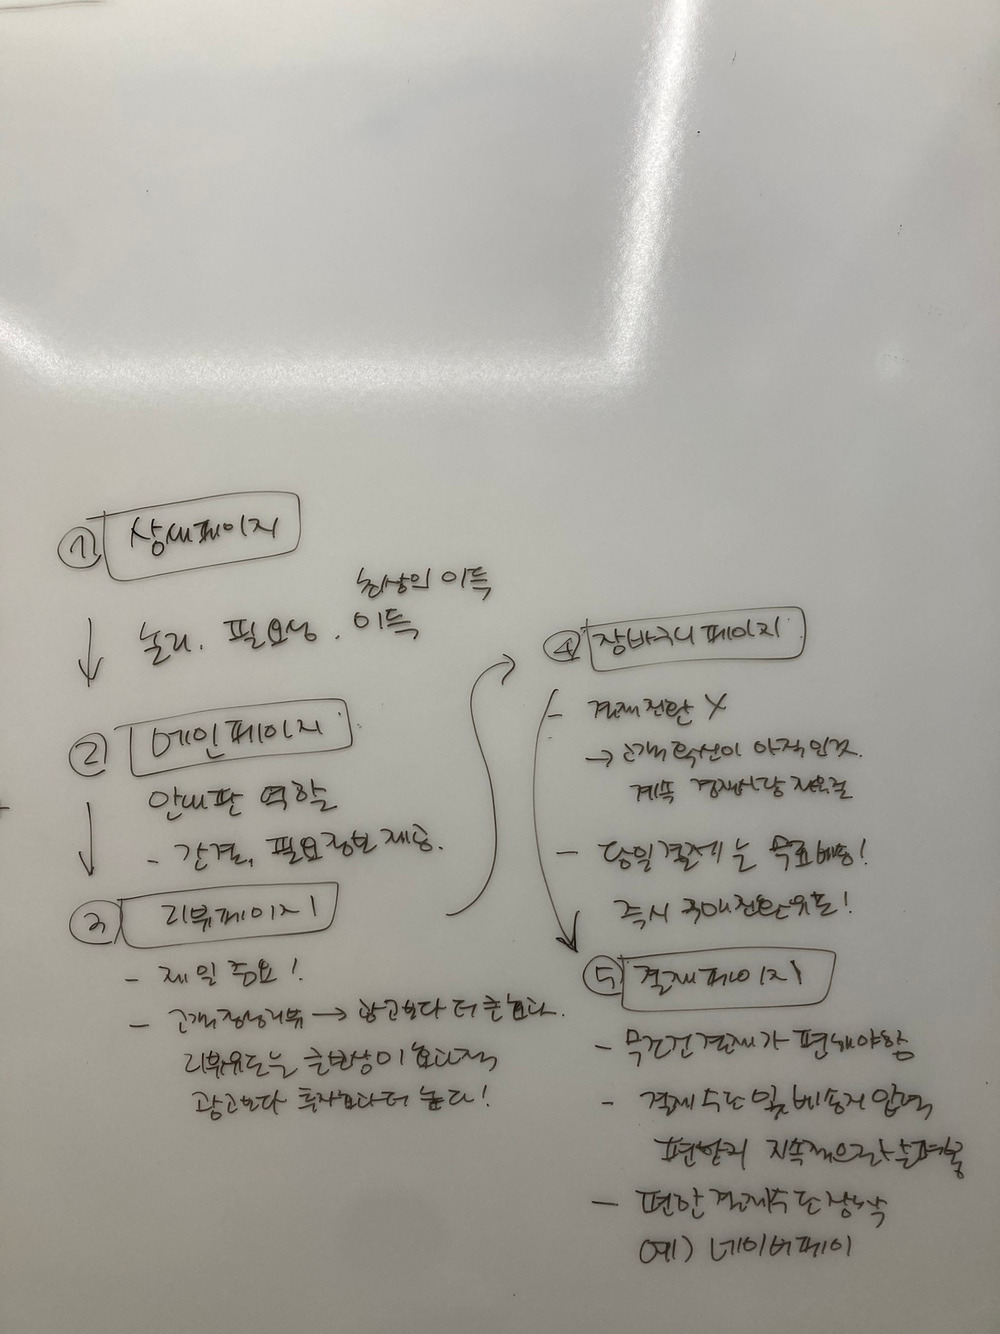 ① 상세페이지
최상의 이득
논리. 필요성. 이득
② 메인페이지
안내판 역할
- 간결, 필요정보제공.
③ 리뷰페이지
- 제일 중요!
- 고객정성리뷰 → 광고보다 더 큰효과.
리뷰유도는
광고보다 더 높다!
④ 장바구니페이지
- 결제전환 X
→ 고객확신이 아직인것.
계속
- 당일결제는 무료배송!
즉시 구매전환유도!
⑤ 결제페이지
- 무조건 결제가 편해야함
- 결제수단 및 배송지 입력
편안히 지속적으로
- 편안 결제수단 장착
예) 네이버페이